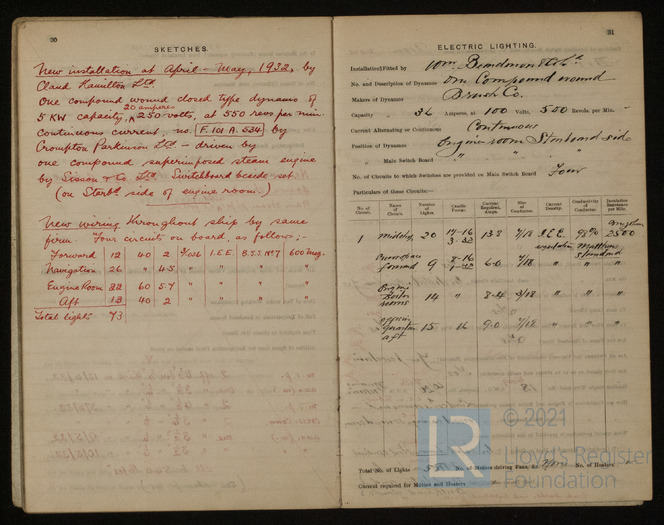 30
SKETCHES.
New installation at April – May, 1932, by
Claud Hamilton Ltd.
One compound wound closed type dynamo of
20 amperes
5 KW capacity, 250 volts, at 550 revs per min.
continuous current, no. F.101 A.534 by
Crompton Parkinson Ltd – driven by
one compound superimposed steam engine
by Sisson & Co. Ltd. Switchboard beside set
(on Starbd side of engine room.)
New wiring throughout ship by same
firm. Four circuits on board, as follows:-
Forward 12 40 2 3/036 I.E.E. B.S.S. No 7 600 meg.
Navigation 26 " 4.5 " " " "
Engine Room 22 60 5.7 " " " "
Aft 13 40 2 " " " "
Total lights 73
31
ELECTRIC LIGHTING.
Installation Fitted by
No. and Description of Dynamos One Compound wound
Makers of Dynamos Brush Co.
Capacity " 36 Amperes, at 100 Volts, 500 Revols. per Min.
Current Alternating or Continuous Continuous
Position of Dynamos Engine room Starboard side
" Main Switch Board " " "
No. of Circuits to which Switches are provided on Main Switch Board Four
Particulars of these Circuits:—
No. of Circuit. Name of Circuit. Number of Lights. Candle Power. Current Required, Amps. Size of Conductor. Current Density. Conductivity of Conductor. Insulation Resistance per Mile.
1 Midship 20 17-16 3-32 13.8 7/18 I.E.E. 98% 2500
forward 9 8-16 6.0 7/18 " standard "
Engine Boiler rooms 14 " 8.4 7/18 " " "
Quarters aft 15 16 9.0 7/18 " " "
Total No. of Lights No. of Motors driving Fans, &c. No. of Heaters
Current required for Motors and Heaters
© 2021
LR
Lloyd's Register
Foundation